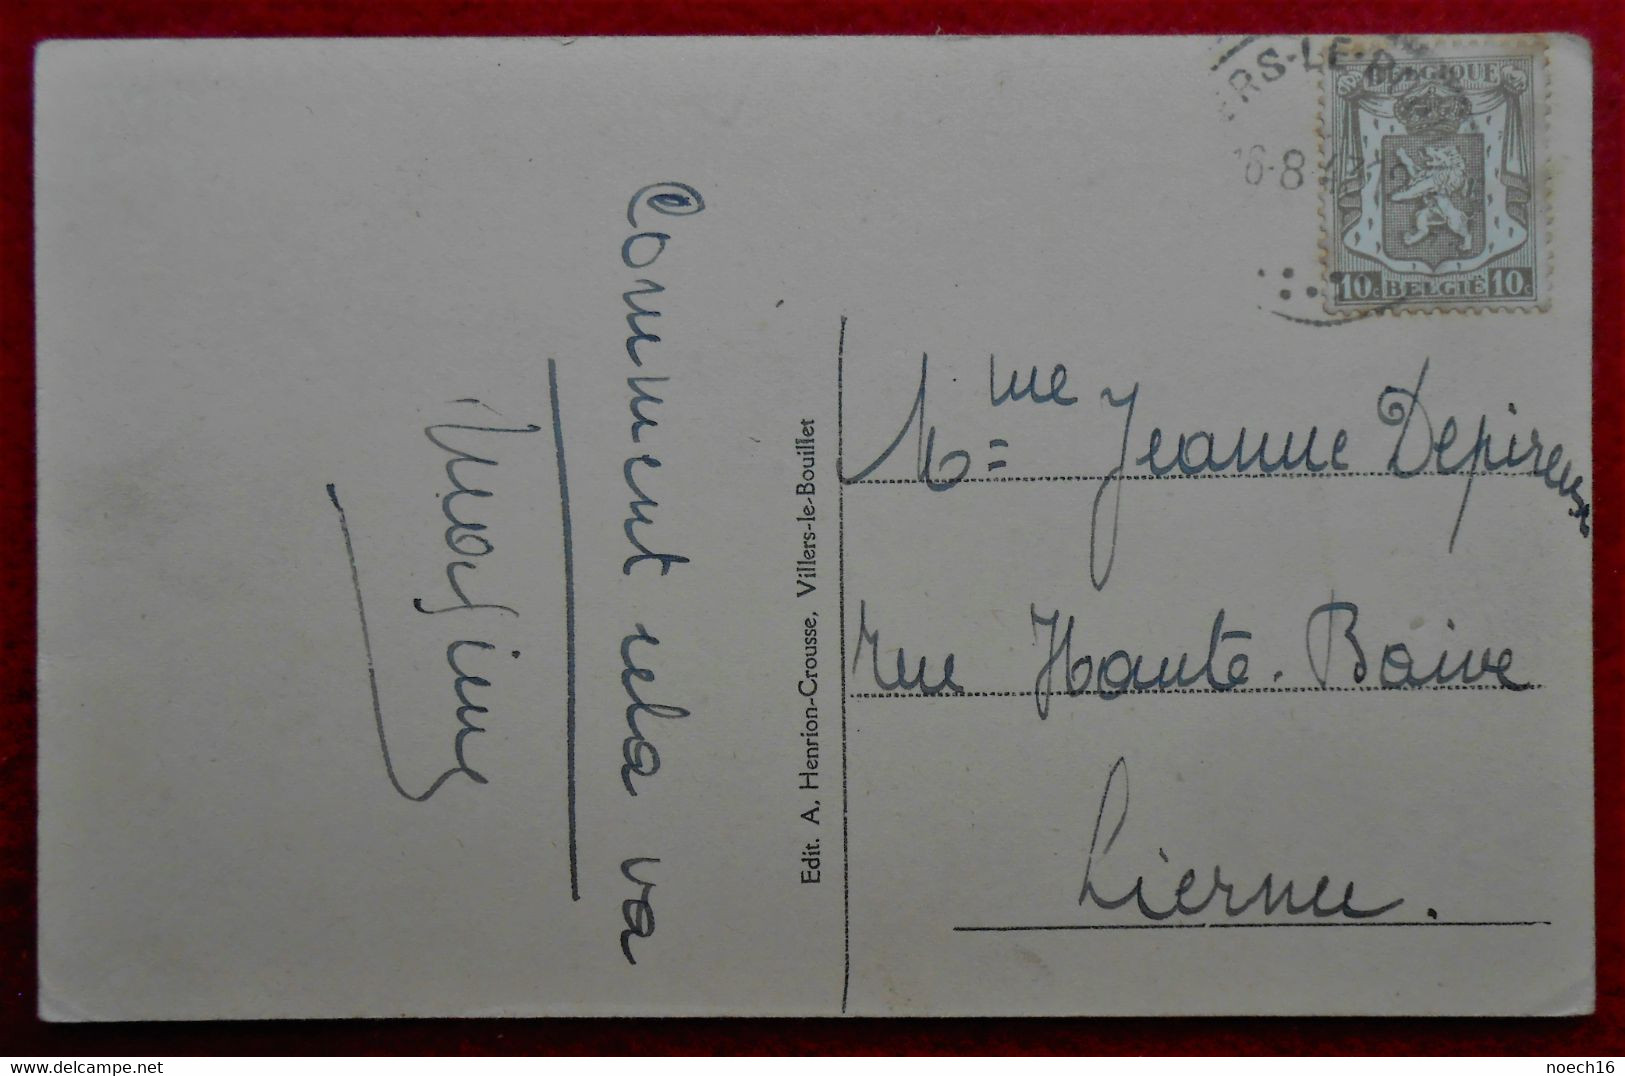 Comment cela va
Edit. A. Henrion-Crousse, Villers-le-Bouillet
ERS-LE-B
BELGIQUE
10c BELGIË 10c
Mme Jeanne Depireux
rue Haute-Baive
Liernu.
noech16